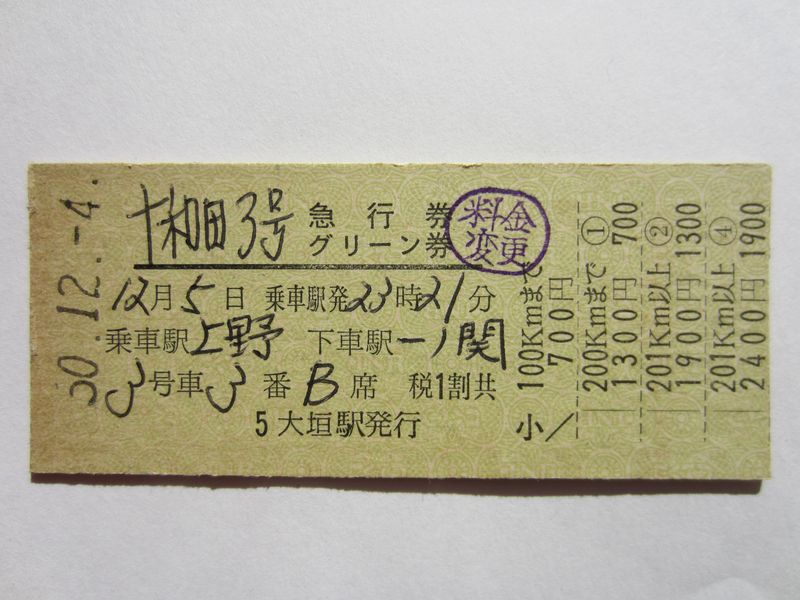 50.12.-4.
十和田3号 急行券
グリーン券
料金
変更
12月5日 乗車駅発23時21分
乗車駅上野 下車駅一ノ関
3号車3番B席 税1割共
5 大垣駅発行
100Kmまで
700円
小/
200Kmまで ① 700
1300円
201Km以上 ② 1300
1900円
201Km以上 ④ 1900
2400円